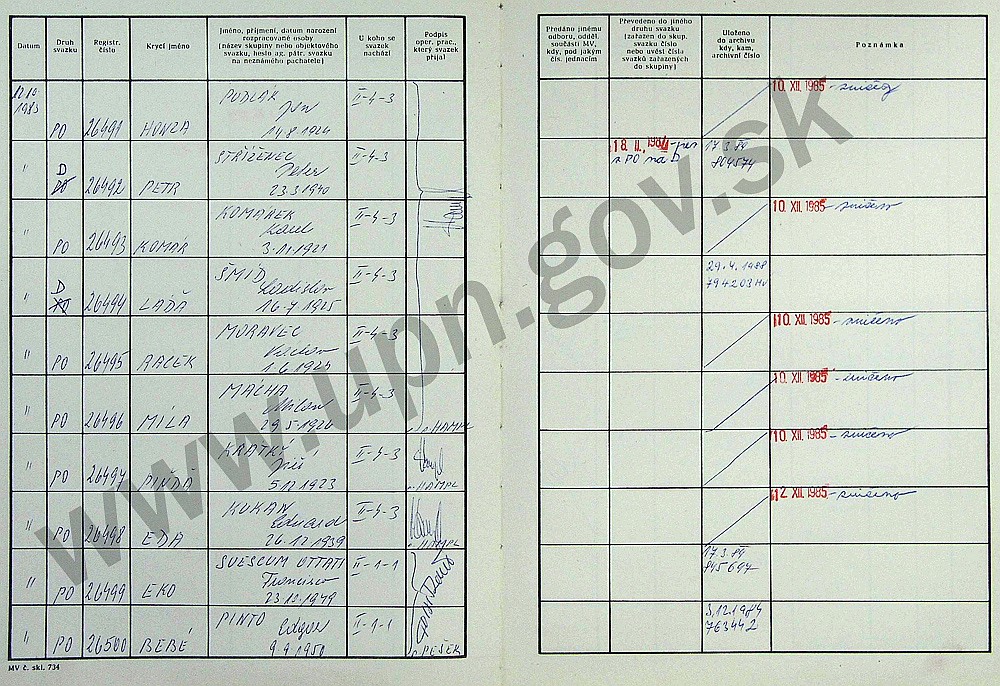 Datum
Druh
svazku
Registr.
číslo
Krycí jméno
Jméno, příjmení, datum narození
rozpracované osoby
(název skupiny nebo objektového
svazku, heslo ag. pátr. svazku
na neznámého pachatele)
U koho se
svazek
nachází
Podpis
oper. prac.,
který svazek
přijal
Předáno jinému
odboru, odděl.
součásti MV,
kdy, pod jakým
čís. jednacím
Převedeno do jiného
druhu svazku
(zařazen do skup.
svazku číslo
nebo uvést čísla
svazků zařazených
do skupiny)
Uloženo
do archivu
kdy, kam,
archivní číslo
Poznámka
PUDLÁK
Jan
PO 26491 HONZA 14.8.1924 II-4-3
10. XII. 1985 - zničeno
STŘÍŽENEC
Peter
" D PO 26492 PETR 23.3.1940 II-4-3
z PO na D
17.3.89
804574
KOMÁREK
Karel
" PO 26493 KOMAR 3.11.1921 II-4-3
10. XII. 1985 - zničeno
ŠMÍD
Ladislav
" D PO 26494 LAĎA 16.7.1925 II-4-3
29.4.1988
794203 HV
MORAVEC
Václav
" PO 26495 RACEK 1.6.1924 II-4-3
10. XII. 1985 - zničeno
MÁCHA
Milan
" PO 26496 MÍLA 29.5.1926 II-4-3 HAMPL
10. XII. 1985 - zničeno
KRÁTKÝ
Jiří
" PO 26497 5.12.1923 II-4-3 HAMPL
10. XII. 1985 - zničeno
KUKAN
Eduard
" PO 26498 EDA 26.12.1939 II-4-3 HAMPL
12. XII. 1985 - zničeno
SUESCUM OTTATI
Francisco
" PO 26499 EKO 23.10.1949 II-1-1
17.3.89
PINTO
Edgar
" PO 26500 BEBÉ 9.9.1950 II-1-1 PEŠEK
3.12.1984
763442
MV č. skl. 734
www.upn.gov.sk